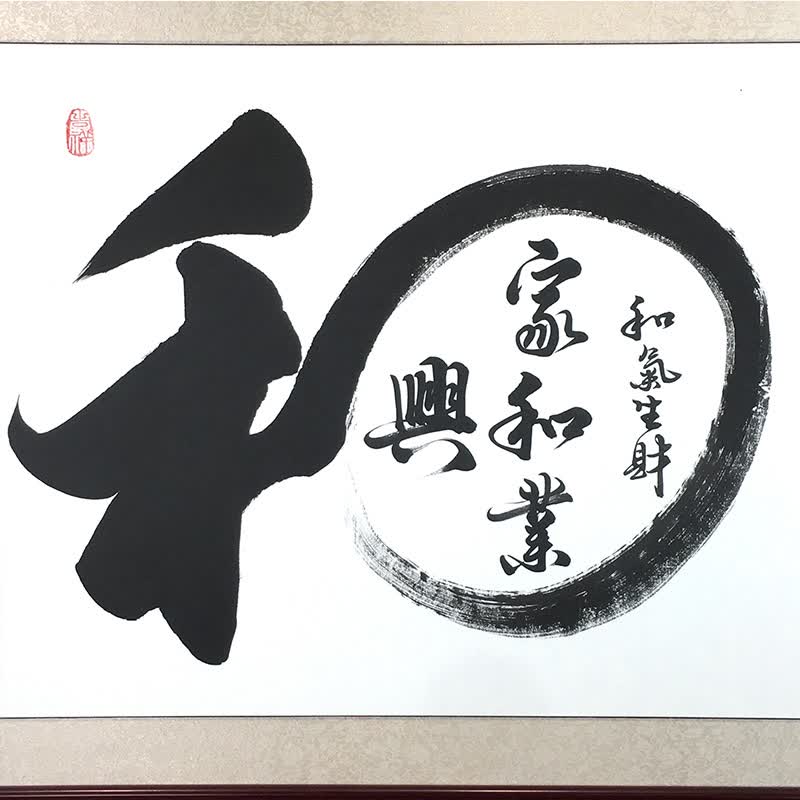 和
和氣生財
家和業
興